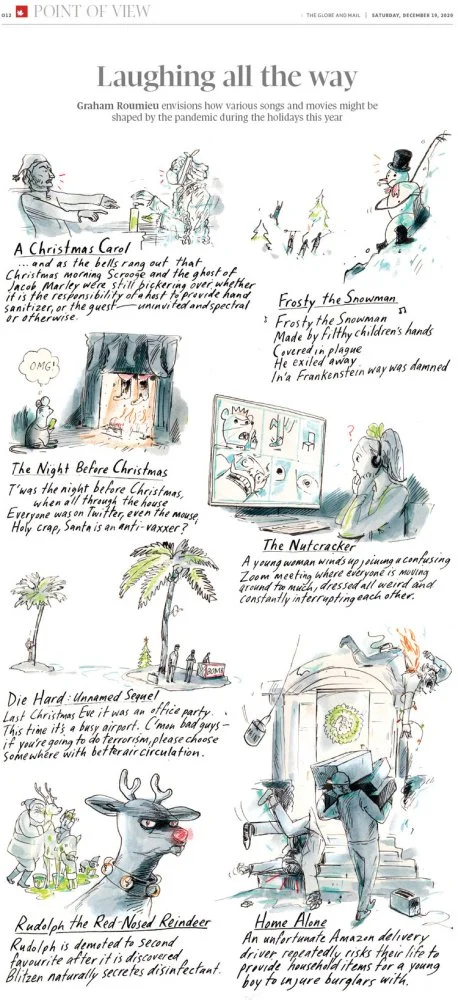 O12 POINT OF VIEW
THE GLOBE AND MAIL | SATURDAY, DECEMBER 19, 2020
Laughing all the way
Graham Roumieu envisions how various songs and movies might be
shaped by the pandemic during the holidays this year
A Christmas Carol
...and as the bells rang out that
Christmas morning Scrooge and the ghost of
Jacob Marley were still bickering over whether
it is the responsibility of a host to provide hand
sanitizer, or the guest — uninvited and spectral
or otherwise.
Frosty the Snowman
Frosty the Snowman
Made by filthy children's hands
Covered in plague
He exiled away
In a Frankenstein way was damned
OMG!
The Night Before Christmas
T'was the night before Christmas,
when all through the house
Everyone was on Twitter, even the mouse,
'Holy crap, Santa is an anti-vaxxer?'
?
The Nutcracker
A young woman winds up joining a confusing
Zoom meeting where everyone is moving
around too much, dressed all weird and
constantly interrupting each other.
BOMB
Die Hard: Unnamed Sequel
Last Christmas Eve it was an office party.
This time it's a busy airport. C'mon bad guys —
if you're going to do terrorism, please choose
somewhere with better air circulation.
Rudolph the Red-Nosed Reindeer
Rudolph is demoted to second
favourite after it is discovered
Blitzen naturally secretes disinfectant.
Home Alone
An unfortunate Amazon delivery
driver repeatedly risks their life to
provide household items for a young
boy to injure burglars with.